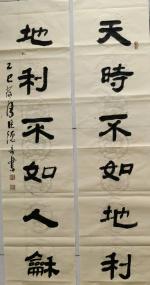 天時不如地利
地利不如人龢
乙巳
書